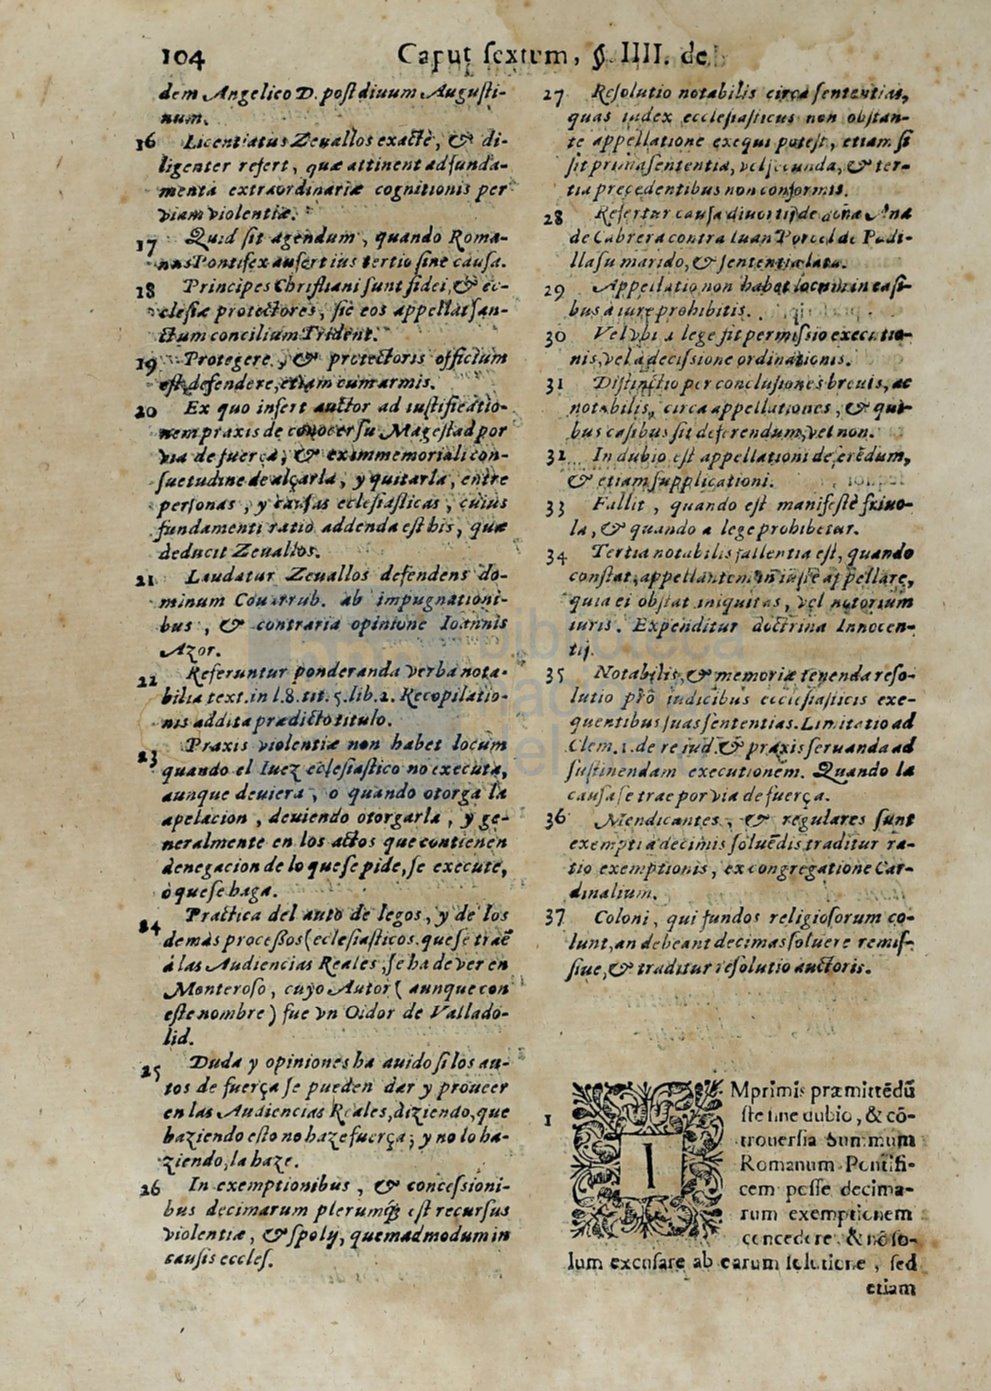 104 Caput sextum, §. IIII. de
dem Angelico D. post diuum Augusti-
num.
16 Licentiatus Zeuallos exactè, & di-
ligenter refert, quæ attinent ad funda-
menta extraordinariæ cognitionis per
viam violentiæ.
17 Quid sit agendum, quando Roma-
nus Pontifex aufert ius tertio sine causa.
18 Principes Christiani sunt fidei, & ec-
clesiæ protectores, sic eos appellat san-
ctum concilium Trident.
19 Protegere, & protectoris officium
est, defendere, etiam cum armis.
20 Ex quo infert auctor ad iustificatio-
nem praxis de conocer su Magestad por
via de fuerça, & ex immemoriali con-
suetudine de alçarla, y quitarla, entre
personas, y causas eclesiasticas, cuius
fundamenti ratio addenda est his, quæ
deducit Zeuallos.
21 Laudatur Zeuallos defendens do-
minum Couarrub. ab impugnationi-
bus, & contraria opinione Ioannis
Azor.
22 Referuntur ponderanda verba nota-
bilia text. in l.8. tit. 5. lib. 2. Recopilatio-
nis addita prædicto titulo.
23 Praxis violentiæ non habet locum
quando el Iuez eclesiastico no executa,
aunque deuiera, o quando otorga la
apelacion, deuiendo otorgarla, y ge-
neralmente en los actos que contienen
denegacion de lo que se pide, se execute,
ò que se haga.
24 Practica del auto de legos, y de los
demàs processos (eclesiasticos. que se traẽ
à las Audiencias Reales, se ha de ver en
Monteroso, cuyo Autor ( aunque con
este nombre ) fue vn Oidor de Vallado-
lid.
25 Duda y opiniones ha auido si los au-
tos de fuerça se pueden dar y proueer
en las Audiencias Reales, diziendo, que
haziendo esto no haze fuerça; y no lo ha-
ziendo, la haze.
26 In exemptionibus, & concessioni-
bus decimarum plerumq; est recursus
violentiæ, & spolij, quemadmodum in
causis eccles.
27 Resolutio notabilis circa sententias,
quas iudex ecclesiasticus non obstan-
te appellatione exequi potest, etiam si
sit prima sententia, vel secunda, & ter-
tia precedentibus non conformis.
28 Refertur causa diuortij de doña Ana
de Cabrera contra Iuan Porcel de Padi-
lla su marido, & sententia lata.
29 Appellatio non habet locum in casi-
bus a iure prohibitis.
30 Vel vbi a lege fit permissio executio-
nis, vel a decissione ordinationis.
31 Distinctio per conclusiones breuis, ac
notabilis, circa appellationes, & qui-
bus casibus sit deferendum, vel non.
32 In dubio est appellationi deferẽdum,
& etiam supplicationi.
33 Fallit, quando est manifestè friuo-
la, & quando a lege prohibetur.
34 Tertia notabilis fallentia est, quando
constat, appellantem iniustè appellare,
quia ei obstat iniquitas, vel notorium
iuris. Expenditur doctrina Innocen-
tij.
35 Notabilis, & memoriæ tenenda reso-
lutio prò iudicibus ecclesiasticis exe-
quentibus suas sententias. Limitatio ad
Clem. 1. de re iud. & praxis seruanda ad
sustinendam executionem. Quando la
causa se trae por via de fuerça.
36 Mendicantes, & regulares sunt
exempti à decimis soluẽdis, traditur ra-
tio exemptionis, ex congregatione Car-
dinalium.
37 Coloni, qui fundos religiosorum co-
lunt, an debeant decimas soluere remis-
siue, & traditur resolutio auctoris.
1 IMprimis præmittẽdũ
ste sine dubio, & cõ-
trouersia Summum
Romanum Pontifi-
cem posse decima-
rum exemptionem
concedere. & nõ so-
lum excusare ab earum solutione, sed
etiam